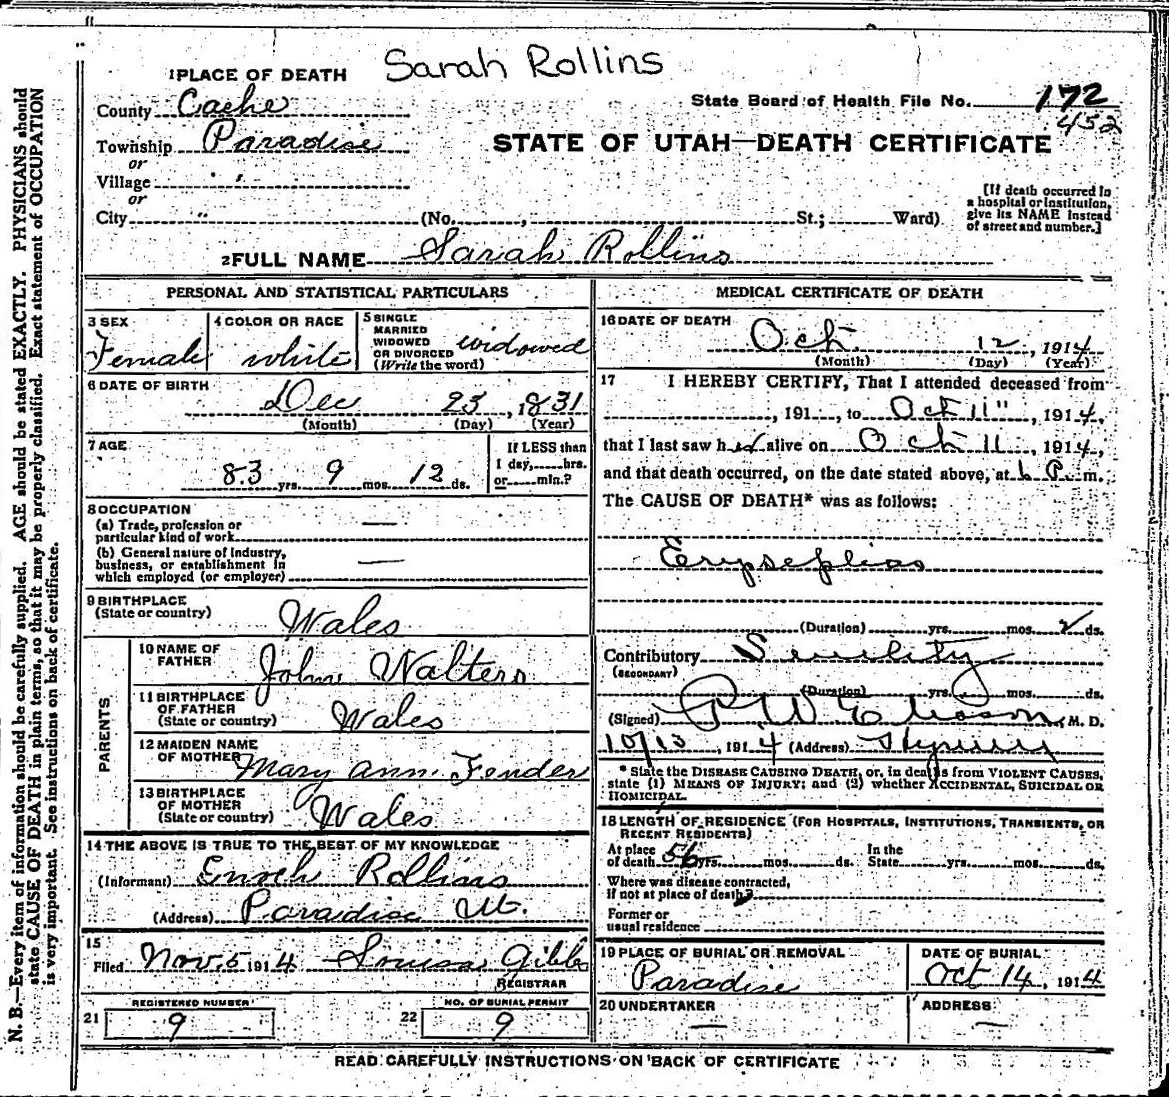 Sarah Rollins
1 PLACE OF DEATH
County Cache
Township Paradise
or
Village " "
or
City " (No. , St.; Ward)
State Board of Health File No. 172
452
STATE OF UTAH—DEATH CERTIFICATE
[If death occurred in
a hospital or institution,
give its NAME instead
of street and number.]
2 FULL NAME Sarah Rollins
PERSONAL AND STATISTICAL PARTICULARS
3 SEX
Female
4 COLOR OR RACE
white
5 SINGLE
MARRIED
WIDOWED
OR DIVORCED
(Write the word)
widowed
6 DATE OF BIRTH
Dec 23, 1831
(Month) (Day) (Year)
7 AGE
83 yrs. 9 mos. 12 ds.
If LESS than
1 day, hrs.
or min.?
8 OCCUPATION
(a) Trade, profession or
particular kind of work —
(b) General nature of industry,
business, or establishment in
which employed (or employer) —
9 BIRTHPLACE
(State or country)
Wales
PARENTS
10 NAME OF
FATHER
John Walters
11 BIRTHPLACE
OF FATHER
(State or country)
Wales
12 MAIDEN NAME
OF MOTHER
Mary Ann Fender
13 BIRTHPLACE
OF MOTHER
(State or country)
Wales
14 THE ABOVE IS TRUE TO THE BEST OF MY KNOWLEDGE
(Informant) Enoch Rollins
(Address) Paradise Ut.
15
Filed Nov. 5 1914 Louisa Gibbs
REGISTRAR
REGISTERED NUMBER
21 9
NO. OF BURIAL PERMIT
22 9
MEDICAL CERTIFICATE OF DEATH
16 DATE OF DEATH
Oct. 12, 1914
(Month) (Day) (Year)
17 I HEREBY CERTIFY, That I attended deceased from
, 191 , to Oct 11", 1914,
that I last saw her alive on Oct 11, 1914,
and that death occurred, on the date stated above, at 6 P. m.
The CAUSE OF DEATH* was as follows:
Erypseplias
(Duration) yrs. mos. 2 ds.
Contributory Senility
(SECONDARY)
(Duration) yrs. mos. ds.
(Signed) M. D.
10/13, 1914 (Address) Hyrum
* State the DISEASE CAUSING DEATH, or, in deaths from VIOLENT CAUSES,
state (1) MEANS OF INJURY; and (2) whether ACCIDENTAL, SUICIDAL OR
HOMICIDAL.
18 LENGTH OF RESIDENCE (FOR HOSPITALS, INSTITUTIONS, TRANSIENTS, OR
RECENT RESIDENTS)
At place
of death 56 yrs. mos. ds.
In the
State yrs. mos. ds.
Where was disease contracted,
if not at place of death?
Former or
usual residence
19 PLACE OF BURIAL OR REMOVAL
Paradise
DATE OF BURIAL
Oct 14, 1914
20 UNDERTAKER
—
ADDRESS
—
READ CAREFULLY INSTRUCTIONS ON BACK OF CERTIFICATE
N. B.—Every item of information should be carefully supplied. AGE should be stated EXACTLY. PHYSICIANS should
state CAUSE OF DEATH in plain terms, so that it may be properly classified. Exact statement of OCCUPATION
is very important. See instructions on back of certificate.